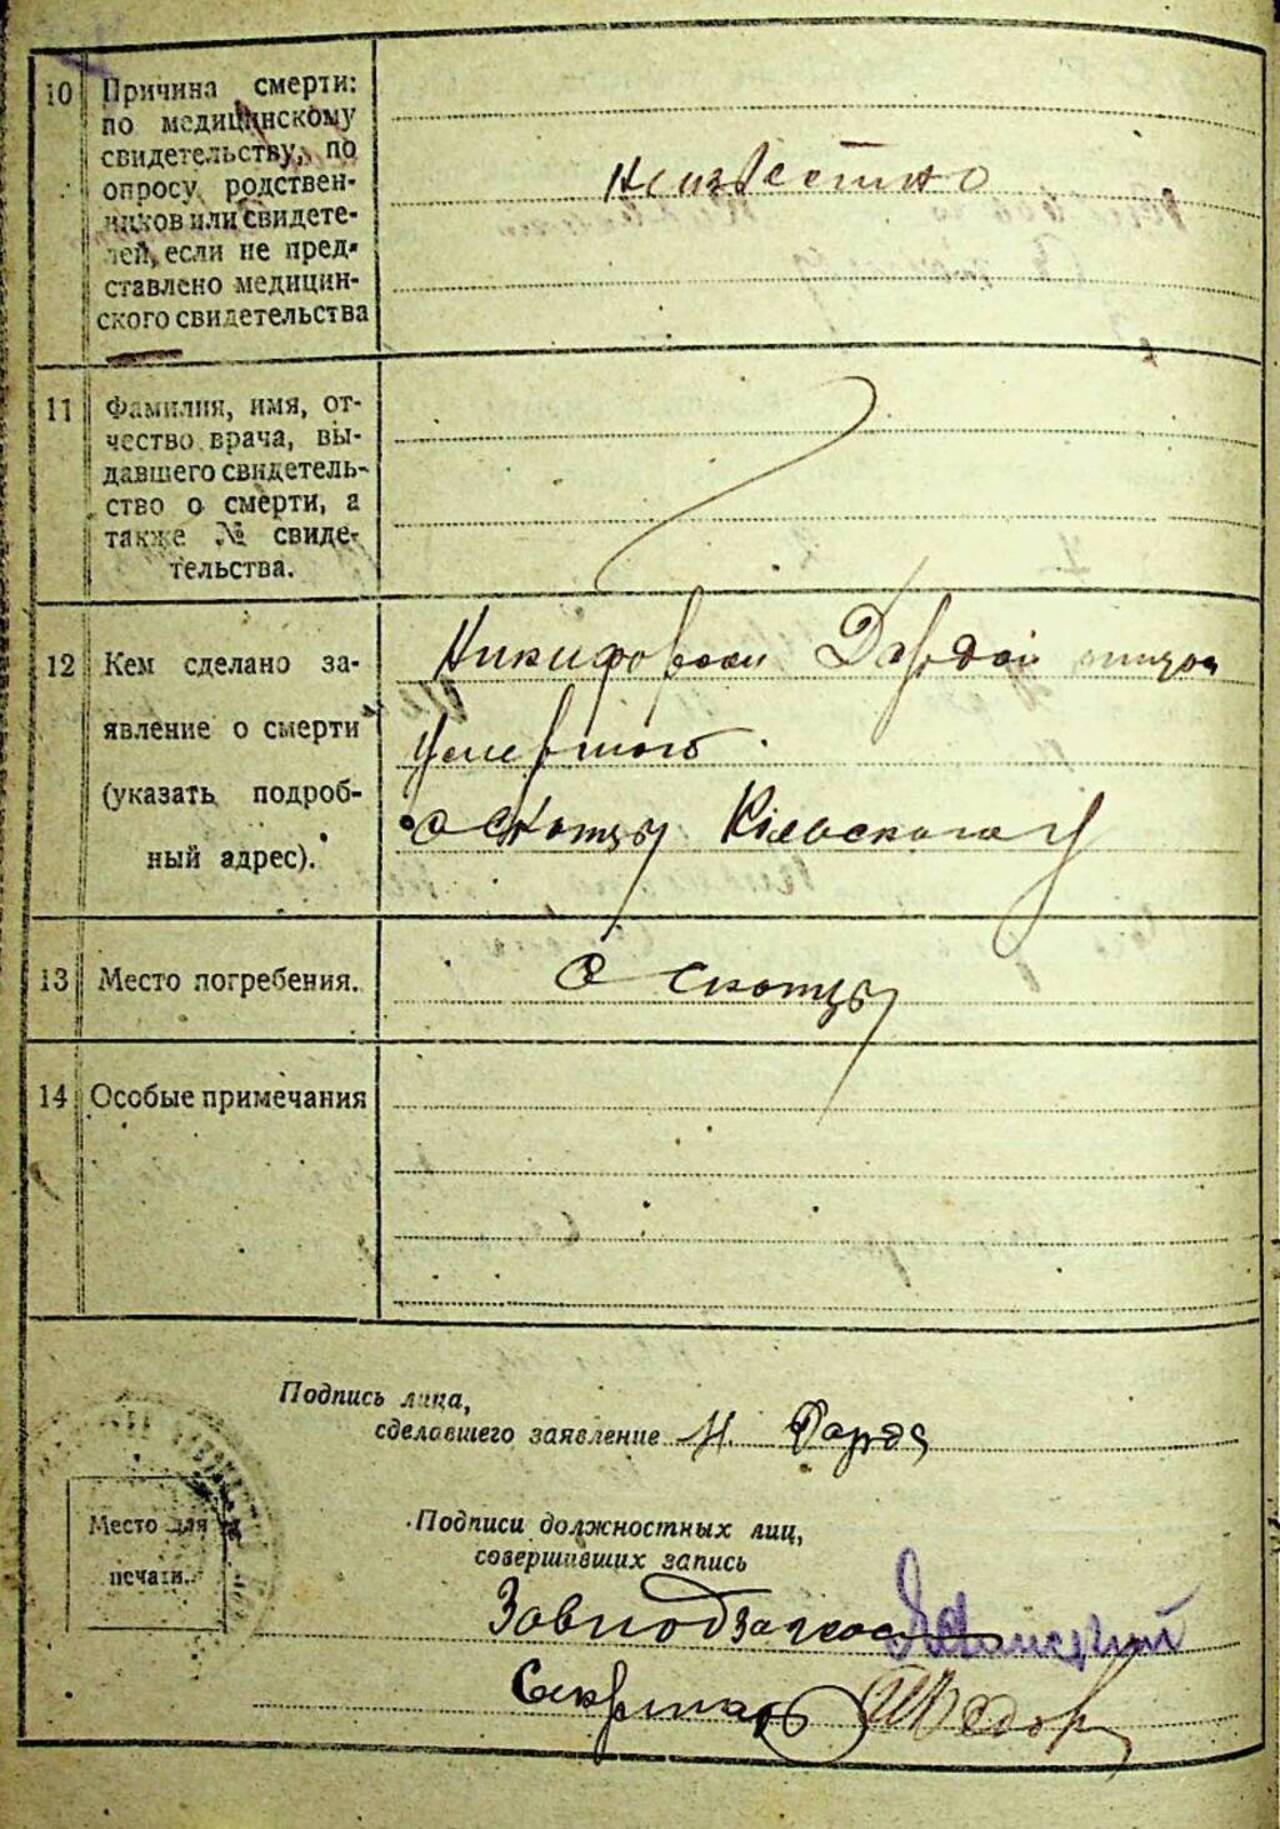 10 Причина смерти:
по медицинскому
свидетельству, по
опросу родствен-
ников или свидете-
лей, если не пред-
ставлено медицин-
ского свидетельства
неизвестно
11 Фамилия, имя, от-
чество врача, вы-
давшего свидетель-
ство о смерти, а
также № свиде-
тельства.
12 Кем сделано за-
явление о смерти
(указать подроб-
ный адрес).
Никифором Дардой
умершого.
с Скотцы
13 Место погребения.
с Скотцы
14 Особые примечания
Подпись лица,
сделавшего заявление Н. Дарда
Подписи должностных лиц,
совершивших запись
Место для
печати.
Завподзагсос
Секретарь